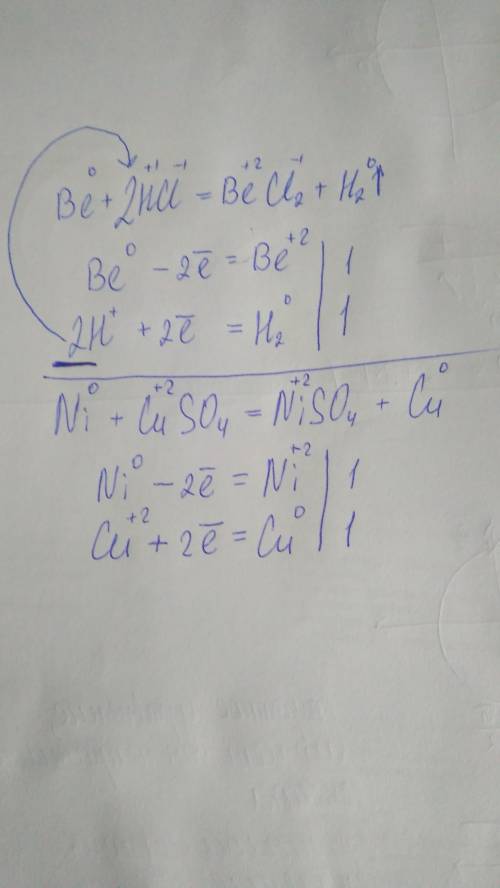 Be⁰ + 2H⁺¹Cl⁻¹ = Be⁺²Cl₂⁻¹ + H₂⁰↑
Be⁰ - 2e̅ = Be⁺² | 1
2H⁺ + 2e̅ = H₂⁰ | 1
Ni⁰ + Cu⁺²SO₄ = Ni⁺²SO₄ + Cu⁰
Ni⁰ - 2e̅ = Ni⁺² | 1
Cu⁺² + 2e̅ = Cu⁰ | 1